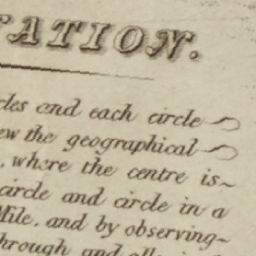 ATION.
cles and each circle
ew the geographical
, where the centre is
circle and circle in a
Mile, and by observing
hrough and